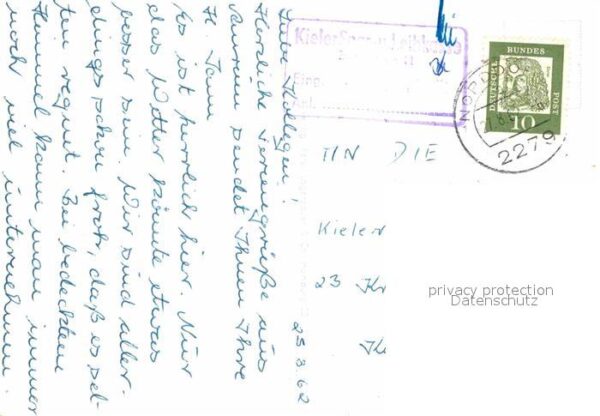 Liebe Kollegen!
Herzliche Feriengrüße aus
Amrum sendet Ihnen Ihre
H. Jann
Es ist herrlich hier. Nur
das Wetter könnte etwas
besser sein. Wir sind aller-
dings schon froh, daß es sel-
ten regnet. Bei bedecktem
Himmel kann man immer
noch viel unternehmen.
25.8.62
Kieler Spar- u. Leihkasse
Eing.
DEUTSCHE BUNDES POST
10
2279
DIE
Kieler
23
privacy protection
Datenschutz